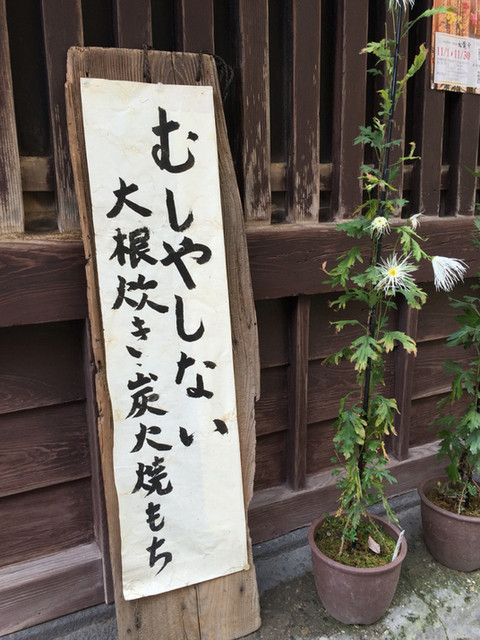 むしやしない
大根炊き・炭火焼もち
11/1▸11/30